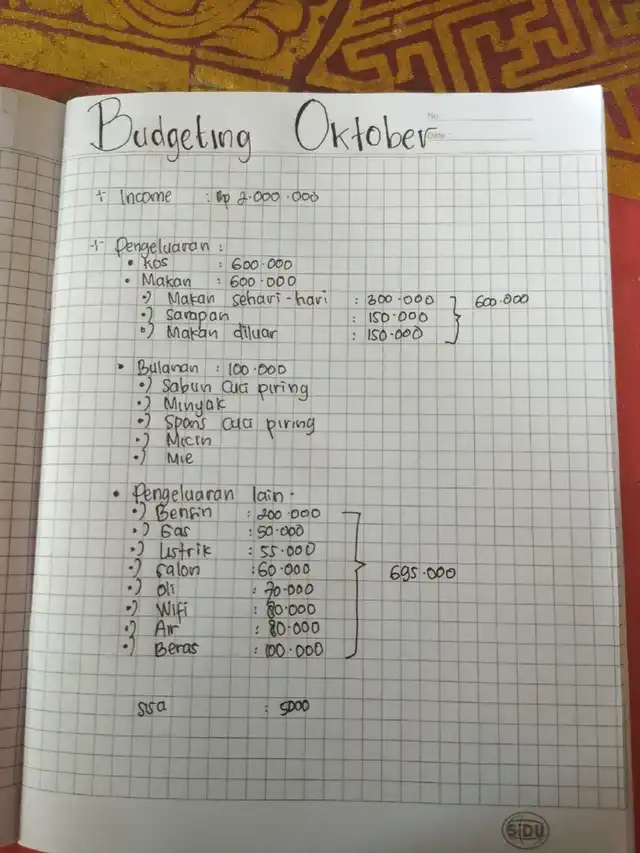 Budgeting Oktober
No.
Date :
+ Income : Rp 2.000.000
+ Pengeluaran :
• Kos : 600.000
• Makan : 600.000
•) Makan sehari-hari : 300.000
•) Sarapan : 150.000
•) Makan diluar : 150.000
600.000
• Bulanan : 100.000
•) Sabun cuci piring
•) Minyak
•) Spons cuci piring
•) Micin
•) Mie
• Pengeluaran lain
•) Bensin : 200.000
•) Gas : 50.000
•) Listrik : 55.000
•) Salon : 60.000
•) Oli : 70.000
•) Wifi : 80.000
•) Air : 80.000
•) Beras : 100.000
695.000
SSa : 5000
SIDU